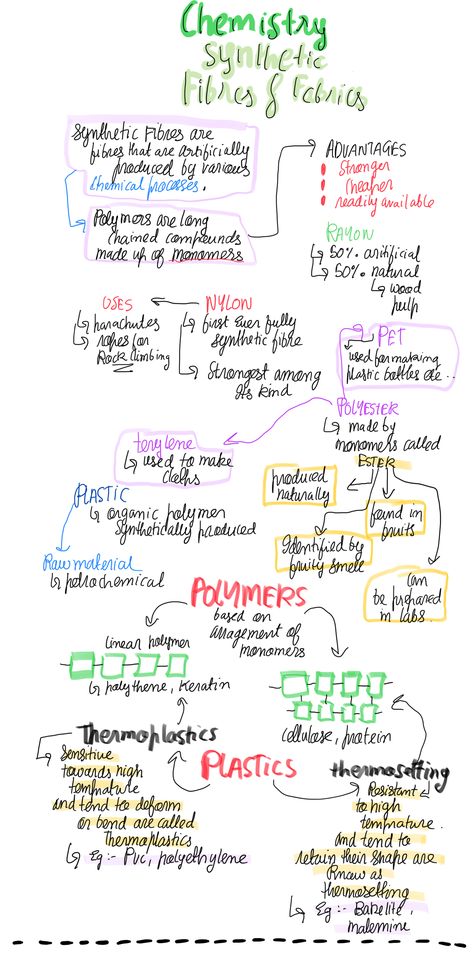 Chemistry
Synthetic
Fibres & Fabrics
Synthetic Fibres are
fibres that are artificially
produced by various
chemical processes.
Polymers are long
chained compounds
made up of monomers
ADVANTAGES
Stronger
cheaper
readily available
RAYON
50% artificial
50% natural
wood
pulp
NYLON
first ever fully
synthetic fibre
Strongest among
its kind
USES
parachutes
ropes for
Rock climbing
PET
used for making
plastic bottles etc..
POLYESTER
made by
monomers called
ESTER
produced
naturally
Identified by
fruity smell
found in
fruits
Can
be prepared
in labs.
terylene
used to make
PLASTIC
organic polymer
synthetically produced
Raw material
petrochemical
POLYMERS
based on
arragement of
monomers
linear polymer
polythene, Keratin
cellulose, protein
PLASTICS
Thermoplastics
Sensitive
towards high
and tend to deform
or bend are called
Thermoplastics
Eg :- Pvc, polyethylene
thermosetting
Resistant
to high
and tend to
retain their shape are
as
thermosetting
Eg :- Bakelite,
malemine